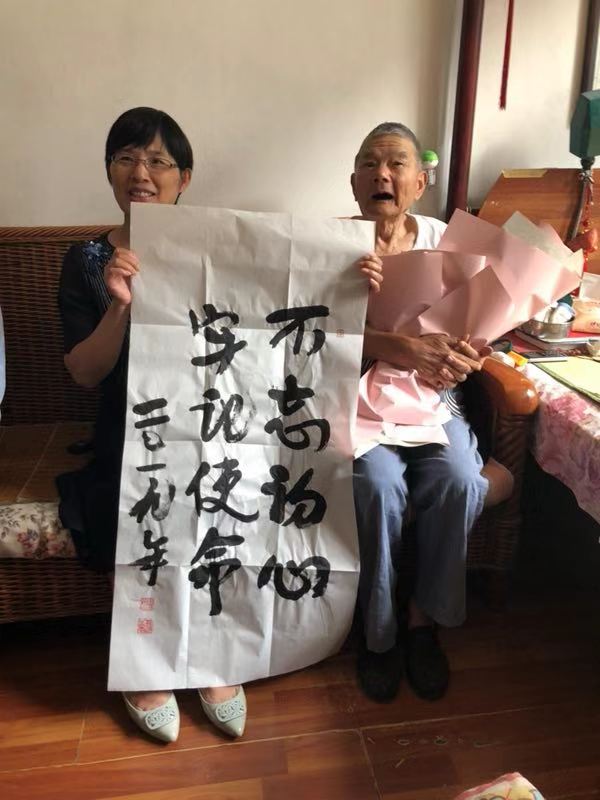 不忘初心
牢记使命
二〇一九年